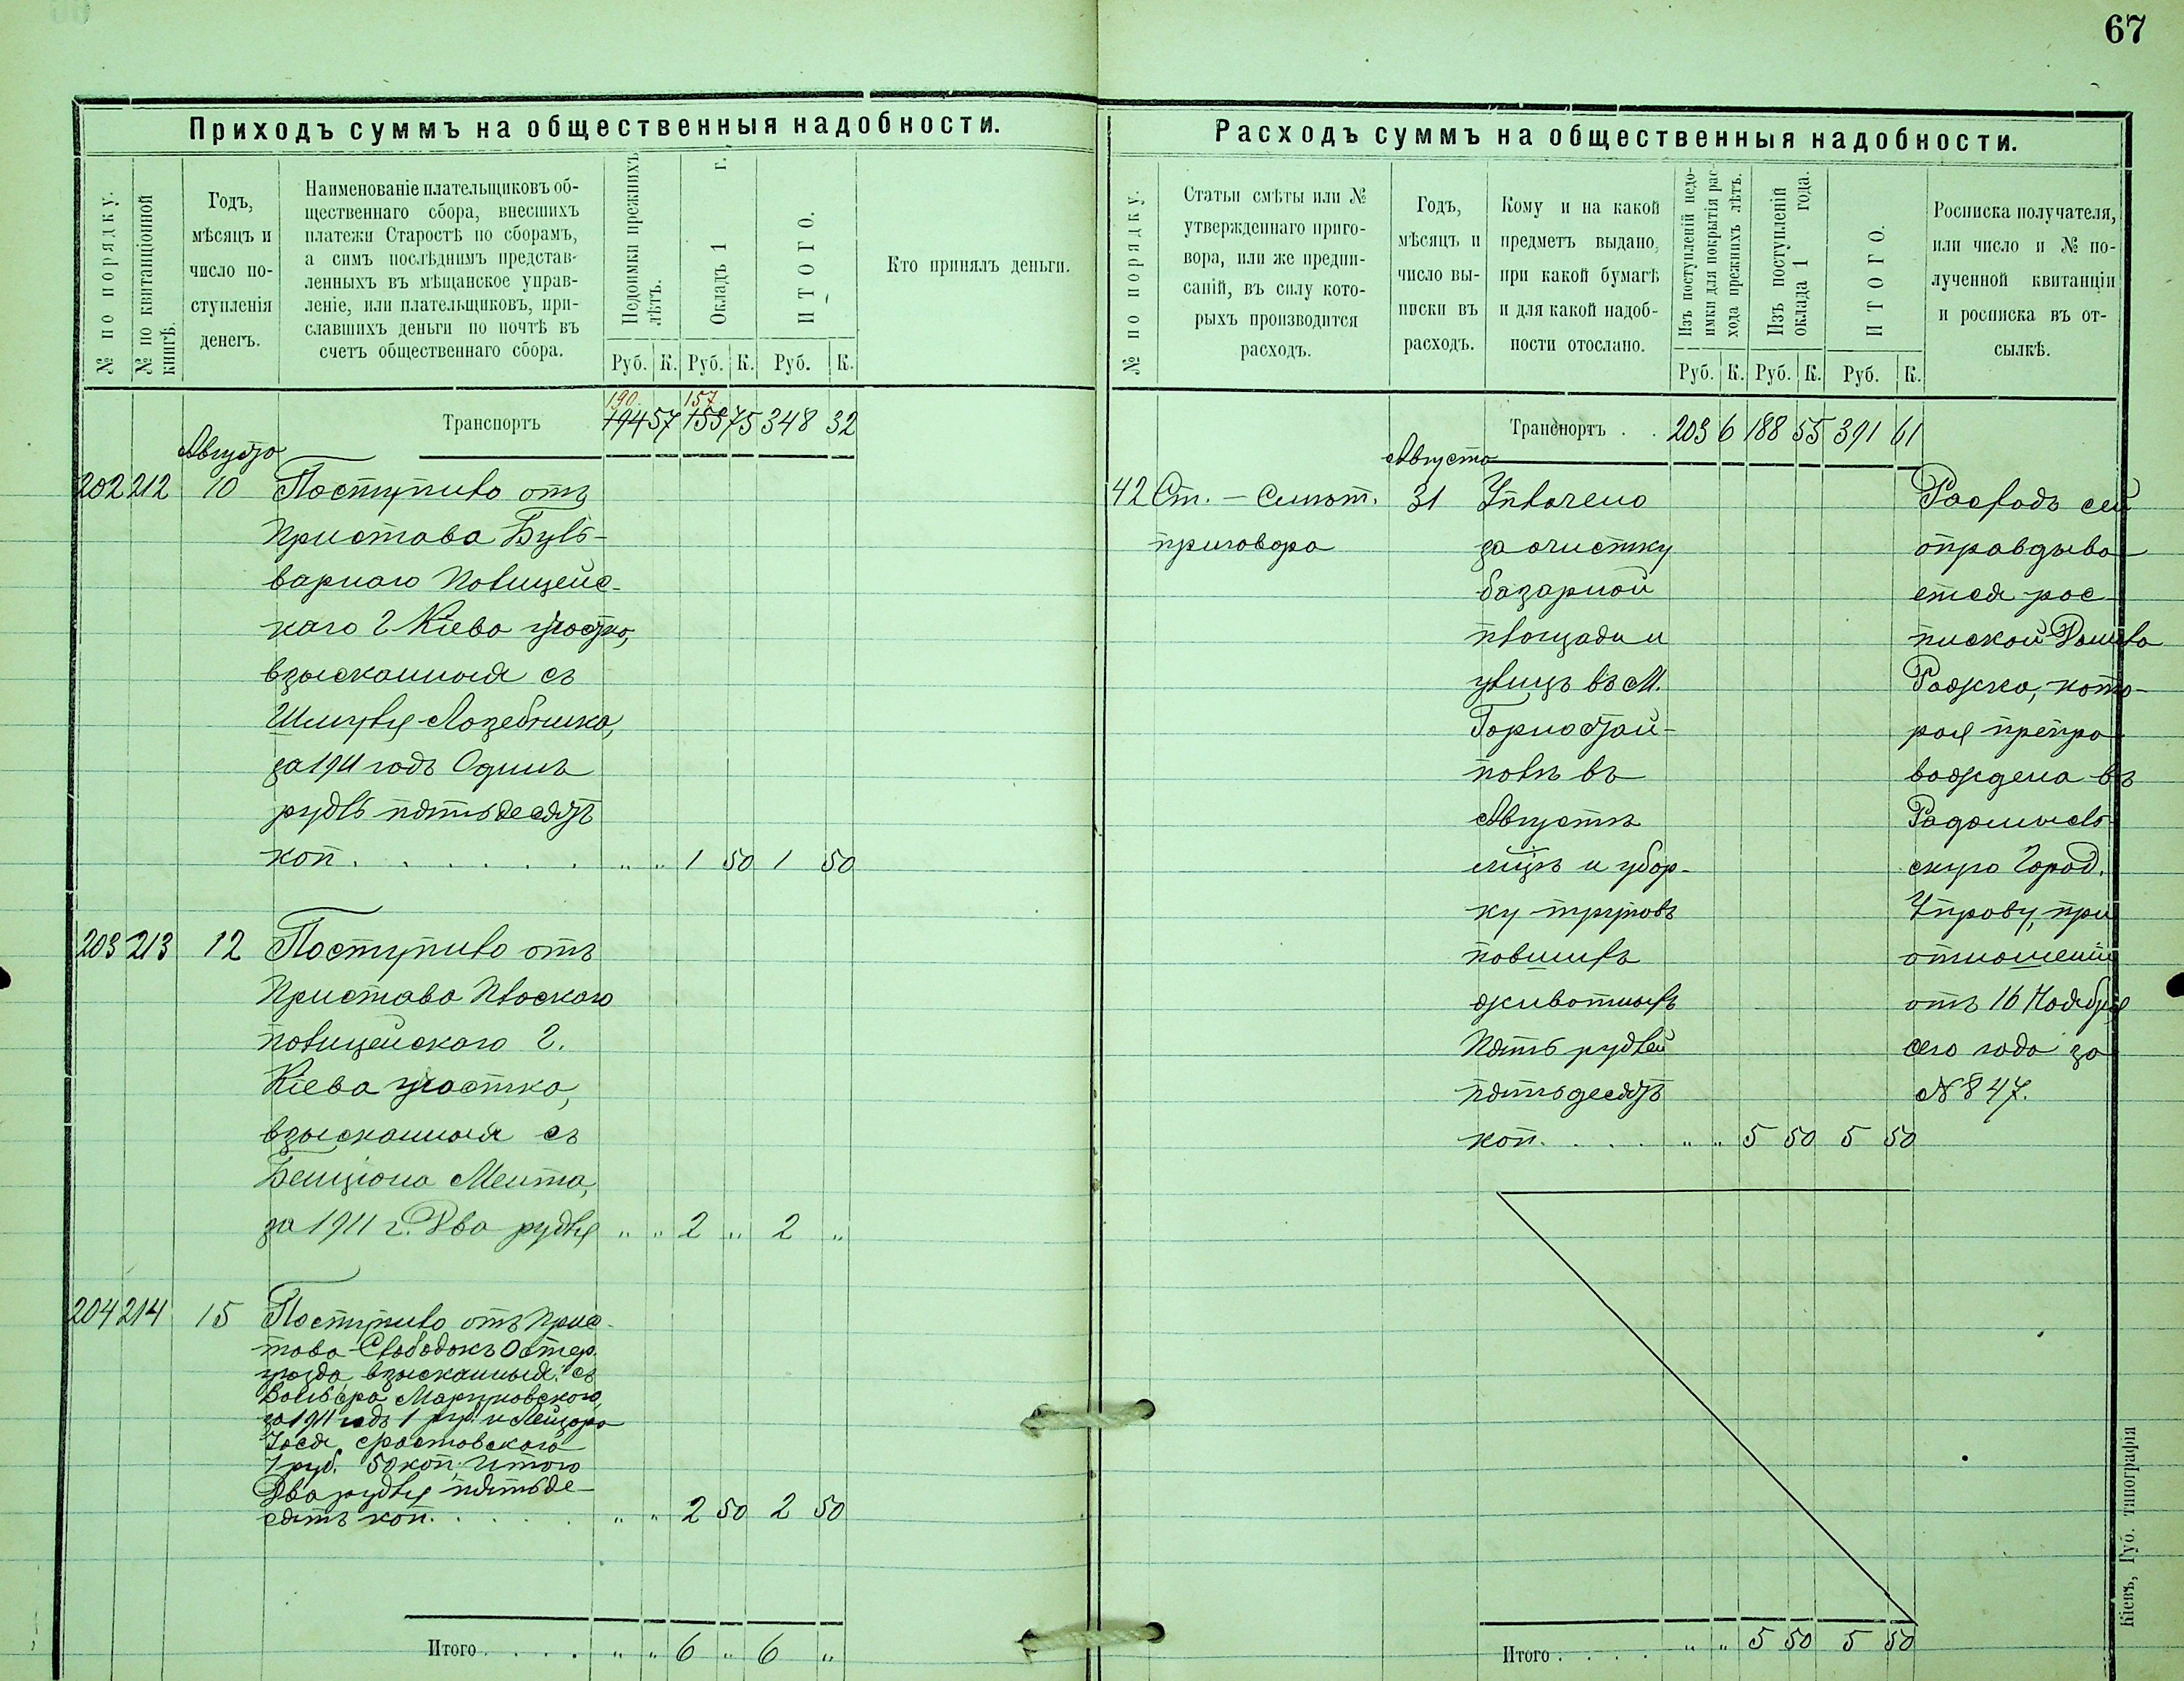 67
Приходъ суммъ на общественныя надобности.
№ по порядку.
№ по квитанціонной
книгѣ.
Годъ,
мѣсяцъ и
число по-
ступленія
денегъ.
Наименованіе плательщиковъ об-
щественнаго сбора, внесшихъ
платежи Старостѣ по сборамъ,
а симъ послѣднимъ представ-
ленныхъ въ мѣщанское управ-
леніе, или плательщиковъ, при-
славшихъ деньги по почтѣ въ
счетъ общественнаго сбора.
Недоимки прежнихъ
лѣтъ.
Окладъ 1 г.
ИТОГО.
Руб. К. Руб. К. Руб. К.
Кто принялъ деньги.
190 157
Транспортъ 194 57 155 75 348 32
Августа
202 212 10 Поступило отъ
Пристава Буль-
варнаго Полицейс-
каго г. Кіева участка,
взысканныя съ
Шмуля Лозебника,
за 1911 годъ Одинъ
рубль пятьдесятъ
коп. . . . . . . „ „ 1 50 1 50
203 213 12 Поступило отъ
Пристава Плоскаго
полицейскаго г.
Кіева участка,
взысканныя съ
Бенціона Мента,
за 1911 г. Два рубля „ „ 2 „ 2 „
204 214 15 Поступило отъ Прис-
това Слободокъ Остер.
уѣзда, взысканныя: съ
за 1911 годъ 1 руб. и Лейзора
1 руб. 50 коп. Итого
Два рубля пятьде-
сятъ коп. . . . . . „ „ 2 50 2 50
Итого . . . . „ „ 6 „ 6 „
Расходъ суммъ на общественныя надобности.
№ по порядку.
Статьи смѣты или №
утвержденнаго приго-
вора, или же предпи-
саній, въ силу кото-
рыхъ производится
расходъ.
Годъ,
мѣсяцъ и
число вы-
писки въ
расходъ.
Кому и на какой
предметъ выдано,
при какой бумагѣ
и для какой надоб-
ности отослано.
Изъ поступленій недо-
имки для покрытія рас
хода прежнихъ лѣтъ.
Изъ поступленій
оклада 1 года.
ИТОГО.
Руб. К. Руб. К. Руб. К.
Росписка получателя,
или число и № по-
лученной квитанціи
и росписка въ от-
сылкѣ.
Транспортъ . . 203 6 188 55 391 61
Августа
42 Ст. – смѣт. 31 Уплачено
приговора за очистку
базарной
площади и
улицъ въ М.
Горностай-
полѣ въ
Августѣ
мцѣ и убор-
ку труповъ
павшихъ
животныхъ
Пять рублей
пятьдесятъ
коп. . . . . „ „ 5 50 5 50
Расходъ сей
оправдыва-
ется рос-
пиской
кото-
рая препро-
вождена въ
Радомысль-
скую Город.
Управу, при
отношеніи
отъ 16 Ноября
сего года за
№ 847.
Итого . . . . „ „ 5 50 5 50
Кіевъ, Губ. типографія